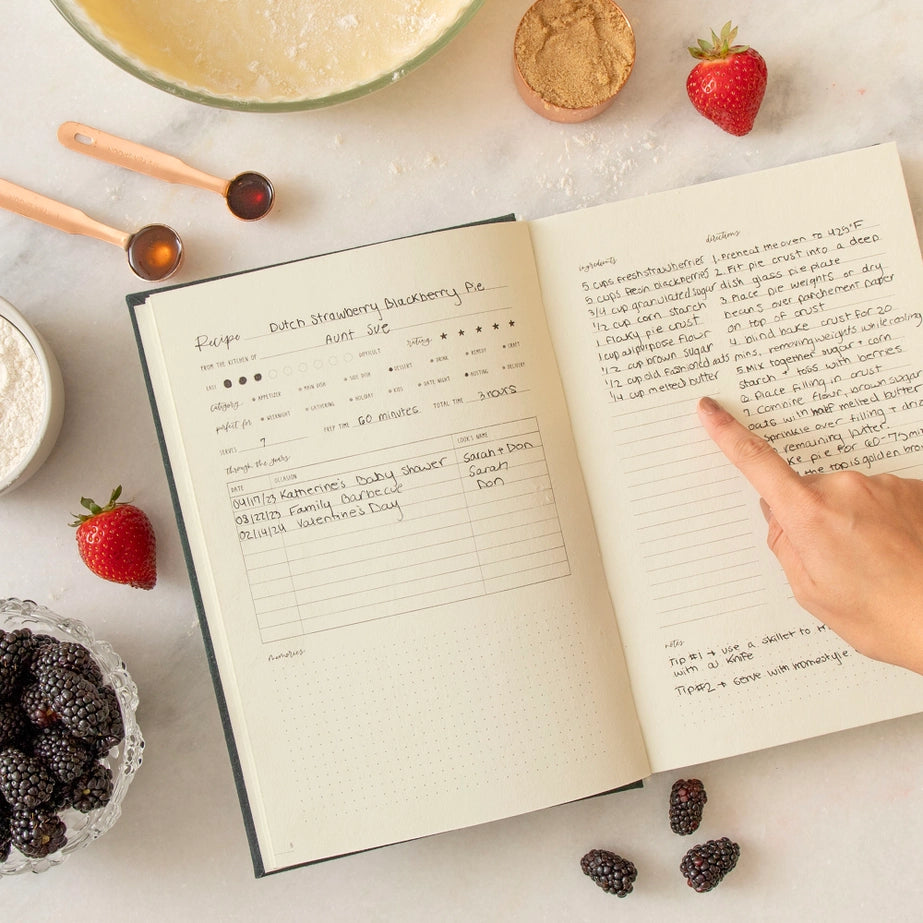 Recipe Dutch Strawberry Blackberry Pie
FROM THE KITCHEN OF Aunt Sue
EASY DIFFICULT Rating ★ ★ ★ ★ ★
Category APPETIZER MAIN DISH SIDE DISH DESSERT DRINK REMEDY CRAFT
perfect for WEEKNIGHT GATHERING HOLIDAY KIDS DATE NIGHT HOSTING DELIVERY
SERVES 7 PREP TIME 60 minutes TOTAL TIME 3 hours
through the years
DATE OCCASION COOK'S NAME
04/17/23 Katherine's Baby Shower Sarah + Don
08/22/23 Family Barbecue Sarah
02/14/24 Valentine's Day Don
memories
ingredients
5 cups fresh strawberries
5 cups fresh blackberries
3/4 cup granulated sugar
1/2 cup corn starch
1 flaky pie crust
1 cup all purpose flour
1/2 cup brown sugar
1/2 cup old fashioned oats
1/4 cup melted butter
directions
1. Preheat the oven to 425°F
2. Fit pie crust into a deep
dish glass pie plate
3. Place pie weights or dry
beans over parchement paper
on top of crust
4. blind bake crust for 20
mins, removing weights while cooling
5. Mix together sugar + corn
starch + toss with berries
6. Place filling in crust
7. Combine flour, brown sugar
oats with half melted butter
sprinkle over filling +
remaining butter.
pie for 60-75
the top is golden
notes
Tip #1 → use a skillet to
with a knife
Tip #2 → serve with homestyle